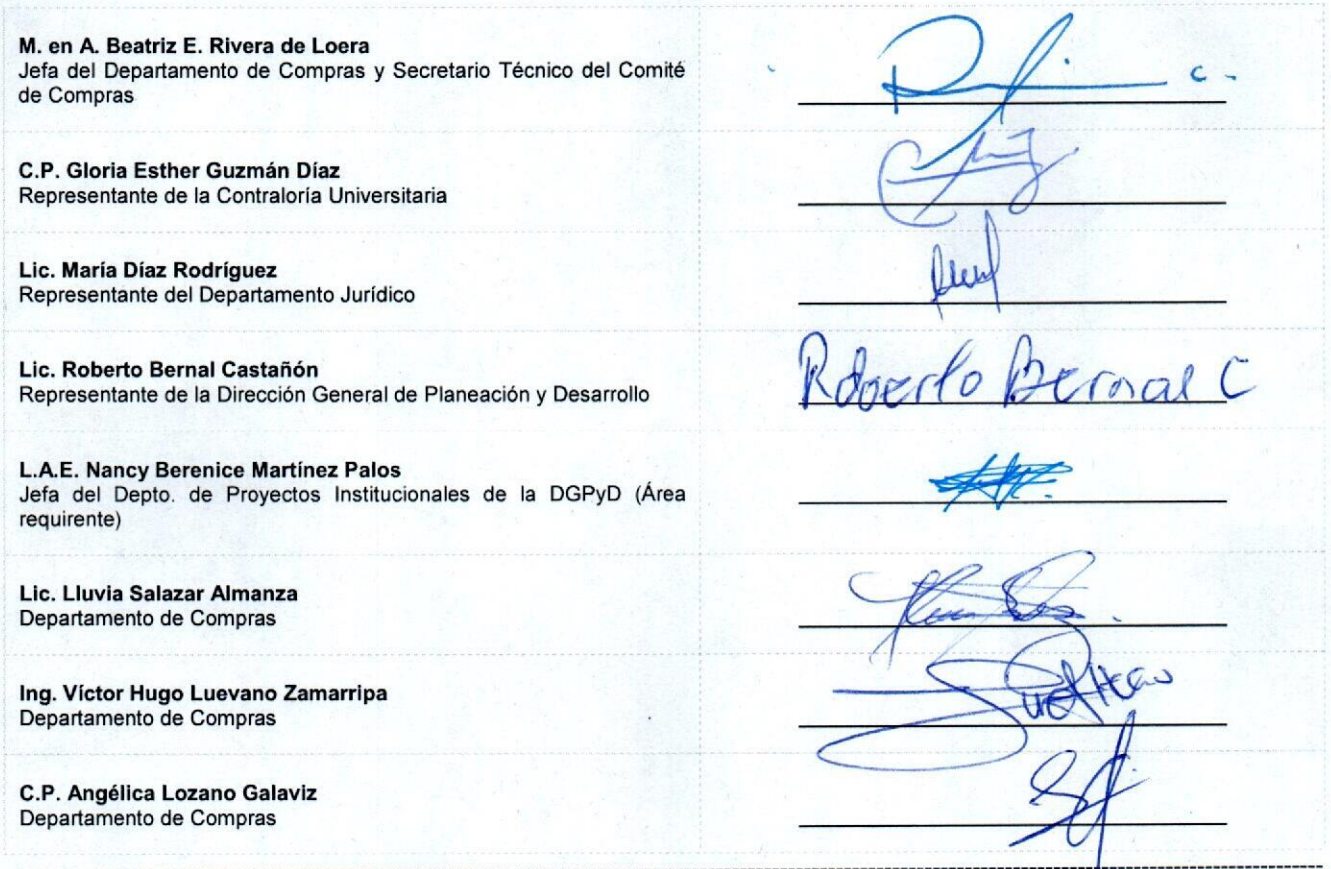 M. en A. Beatriz E. Rivera de Loera
Jefa del Departamento de Compras y Secretario Técnico del Comité
de Compras
C.P. Gloria Esther Guzmán Díaz
Representante de la Contraloría Universitaria
Lic. María Díaz Rodríguez
Representante del Departamento Jurídico
Lic. Roberto Bernal Castañón
Representante de la Dirección General de Planeación y Desarrollo
Roberto Bernal C
L.A.E. Nancy Berenice Martínez Palos
Jefa del Depto. de Proyectos Institucionales de la DGPyD (Área
requirente)
Lic. Lluvia Salazar Almanza
Departamento de Compras
Ing. Víctor Hugo Luevano Zamarripa
Departamento de Compras
C.P. Angélica Lozano Galaviz
Departamento de Compras